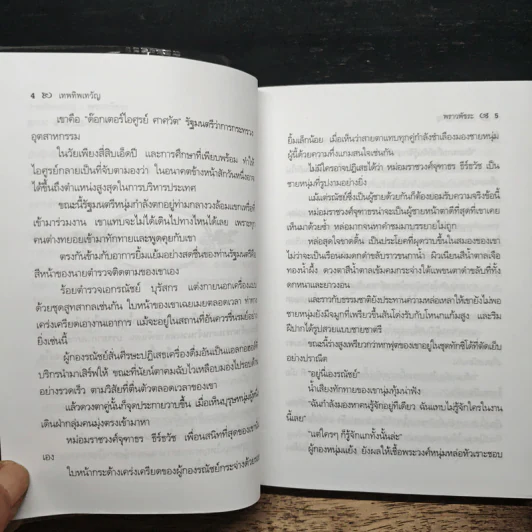 4 เทพทิพเทวัญ
เขาคือ “ด๊อกเตอร์ไอศูรย์ ศาศวัต” รัฐมนตรีว่าการกระทรวง
อุตสาหกรรม
ในวัยเพียงสี่สิบเอ็ดปี และการศึกษาที่เพียบพร้อม ทำให้
ไอศูรย์กลายเป็นที่จับตามองว่า ในอนาคตข้างหน้าสักวันหนึ่งอาจ
ได้ขึ้นถึงตำแหน่งสูงสุดในการบริหารประเทศ
ขณะนี้รัฐมนตรีหนุ่มกำลังตกอยู่ท่ามกลางวงล้อมแขกเหรื่อที่
เข้ามาร่วมงาน เขาแทบจะไม่ได้เดินไปทางไหนได้เลย เพราะทุก
คนต่างทยอยเข้ามาทักทายและพูดคุยกับเขา
ตรงกันข้ามกับการยิ้มแย้มอย่างสดชื่นของท่านรัฐมนตรีคือ
สีหน้าของนายตำรวจติดตามของเขาเอง
ร้อยตำรวจเอกรณัชย์ บุรัสกร แต่งกายนอกเครื่องแบบ
ด้วยชุดสูทสากลเช่นกัน ใบหน้าของเขาเฉยเมยตลอดเวลา ท่าทาง
เคร่งเครียดเอางานเอาการ แม้จะอยู่ในสถานที่อันควรรื่นรมย์อย่าง
ยิ่งเช่นนี้
ผู้กองรณัชย์สั่นศีรษะปฏิเสธเครื่องดื่มอันเป็นแอลกอฮอล์ที่
บริกรนำมาเสิร์ฟให้ ขณะที่นัยน์ตาคมฉับไวเหลือบมองไปรอบด้าน
อย่างรวดเร็ว ตามวิสัยที่ตื่นตัวตลอดเวลาของเขา
แล้วดวงตาคู่นั้นก็จุดประกายวาบขึ้น เมื่อเห็นบุรุษหนุ่มผู้หนึ่ง
เดินฝ่ากลุ่มคนมุ่งตรงเข้ามาหา
หม่อมราชวงศ์จุฑาธร ธีร์ธวัช เพื่อนสนิทที่สุดของเขานั่น
เอง
ใบหน้ากระด้างเคร่งเครียดของผู้กองรณัชย์กระจ่างด้วยรอย
พราวพัชระ 5
ยิ้มเล็กน้อย เมื่อเห็นว่าสายตาแทบทุกคู่กำลังชำเลืองมองชายหนุ่ม
ผู้นี้ด้วยความทึ่งแกมสนใจเช่นกัน
ไม่มีใครอาจปฏิเสธได้ว่า หม่อมราชวงศ์จุฑาธร ธีร์ธวัช เป็น
ชายหนุ่มที่รูปงามอย่างยิ่ง
แม้แต่รณัชย์ซึ่งเป็นผู้ชายด้วยกันก็ต้องยอมรับความจริงข้อนี้
หม่อมราชวงศ์จุฑาธรน่าจะเป็นผู้ชายหน้าตาดีที่สุดที่เขาเคย
เห็นมาด้วยซ้ำ หล่อมากจนหาคำชมมาบรรยายไม่ถูก
หล่อสุดใจขาดดิ้น เป็นประโยคที่ผุดวาบขึ้นในสมองของเขา
ไม่ว่าจะเป็นเรือนผมดกดำขลับราวขนกาน้ำ ผิวเนียนสีน้ำตาลเจือ
ทองน้ำผึ้ง ดวงตาสีน้ำตาลเข้มคมกระจ่างใต้แพขนตาดำขลับที่ทั้ง
ดกหนาและยาวงอน
และราวกับธรรมชาติยังประทานความหล่อเหลาให้เขายังไม่พอ
ชายหนุ่มยังมีจมูกที่เพรียวขึ้นสันโด่งรับกับโหนกแก้มสูง และริม
ฝีปากได้รูปสวยแบบชายชาตรี
ขณะนี้ร่างสูงเพรียวกว่าหกฟุตของเขาอยู่ในชุดทักซิโด้ที่ตัดเย็บ
อย่างปราณีต
“อยู่นี่เองรณัชย์”
น้ำเสียงทักทายของเขานุ่มทุ้มน่าฟัง
“ฉันกำลังมองหาคนรู้จักอยู่ทีเดียว ฉันแทบไม่รู้จักใครในงาน
นี้เลย”
“แต่ใครๆ ก็รู้จักแกทั้งนั้นล่ะ”
ผู้กองหนุ่มแย้ง ยังผลให้เชื้อพระวงศ์หนุ่มหล่อหัวเราะชอบ